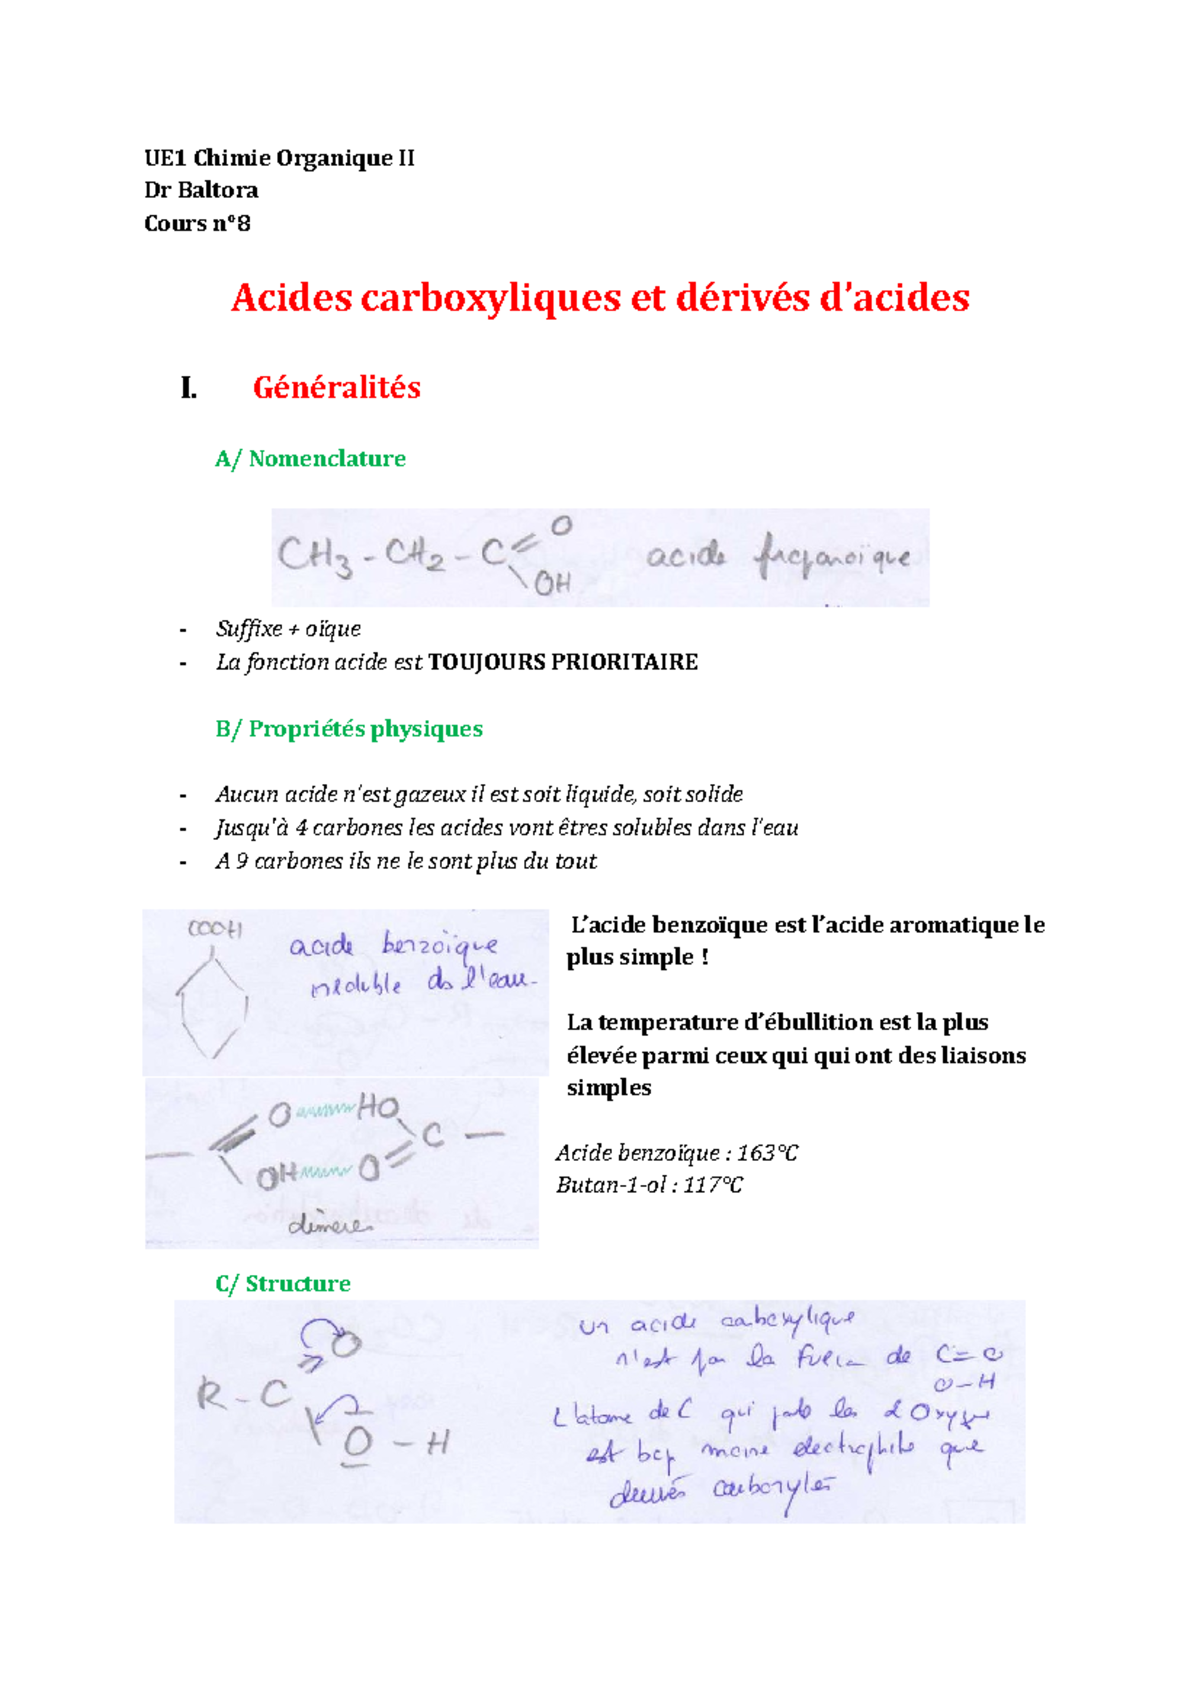 UE1 Chimie Organique II
Dr Baltora
Cours n°8
Acides carboxyliques et dérivés d'acides
I. Généralités
A/ Nomenclature
CH3 - CH2 - C O OH acide propanoïque
- Suffixe + oïque
- La fonction acide est TOUJOURS PRIORITAIRE
B/ Propriétés physiques
- Aucun acide n'est gazeux il est soit liquide, soit solide
- Jusqu'à 4 carbones les acides vont êtres solubles dans l'eau
- A 9 carbones ils ne le sont plus du tout
COOH
acide benzoïque
insoluble ds l'eau.
L'acide benzoïque est l'acide aromatique le
plus simple !
La temperature d'ébullition est la plus
élevée parmi ceux qui qui ont des liaisons
simples
O HO
C
OH O
dimere
Acide benzoïque : 163°C
Butan-1-ol : 117°C
C/ Structure
O
R - C
O - H
un acide carboxylique
n'est pas la de C=O
O-H
L'atome de C qui porte les 2 Oxygene
est bcp moins electrophile que
derivés carbonyles